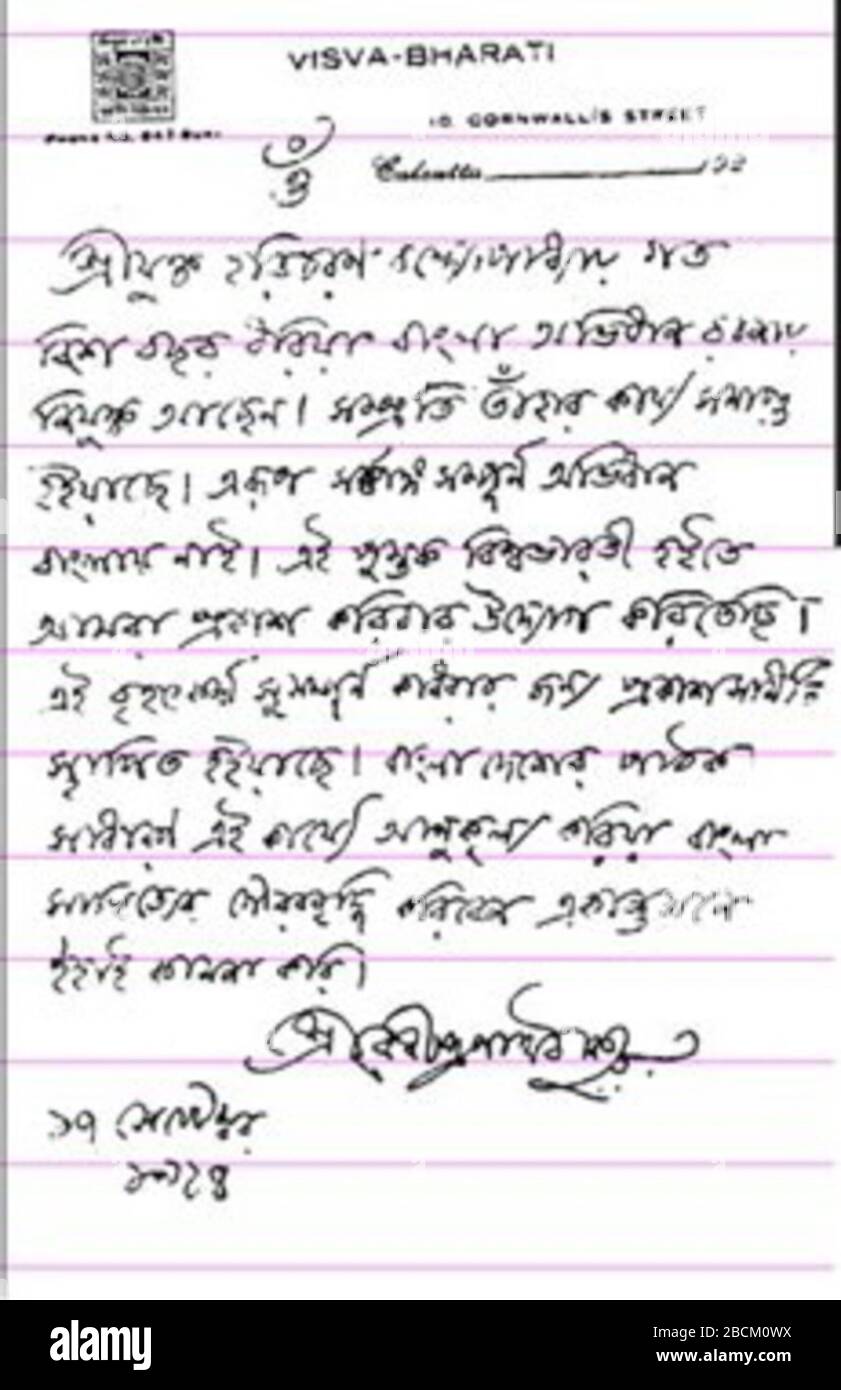 VISVA-BHARATI
10 CORNWALLIS STREET
Calcutta 192
ওঁ
শ্রীযুক্ত হরিচরণ বন্দ্যোপাধ্যায় গত
বিশ বছর ধরিয়া বাংলা অভিধান রচনায়
নিযুক্ত আছেন। সম্প্রতি তাঁহার কার্য্য সমাপ্ত
হইয়াছে। এরূপ সর্ব্বাঙ্গসম্পূর্ণ অভিধান
বাংলায় নাই। এই পুস্তক বিশ্বভারতী হইতে
আমরা প্রকাশ করিবার উদ্যোগ করিতেছি।
এই বৃহৎকার্য্য সুসম্পূর্ণ করিবার জন্য প্রকাশসমিতি
স্থাপিত হইয়াছে। বাংলাদেশের পাঠক
সাধারণ এই কার্য্যে আনুকূল্য করিয়া বাংলা
সাহিত্যের গৌরববৃদ্ধি করিবেন একান্তমনে
ইহাই কামনা করি।
শ্রীরবীন্দ্রনাথ ঠাকুর
১৭ সেপ্টেম্বর
alamy
Image ID: 2BCM0WX
www.alamy.com